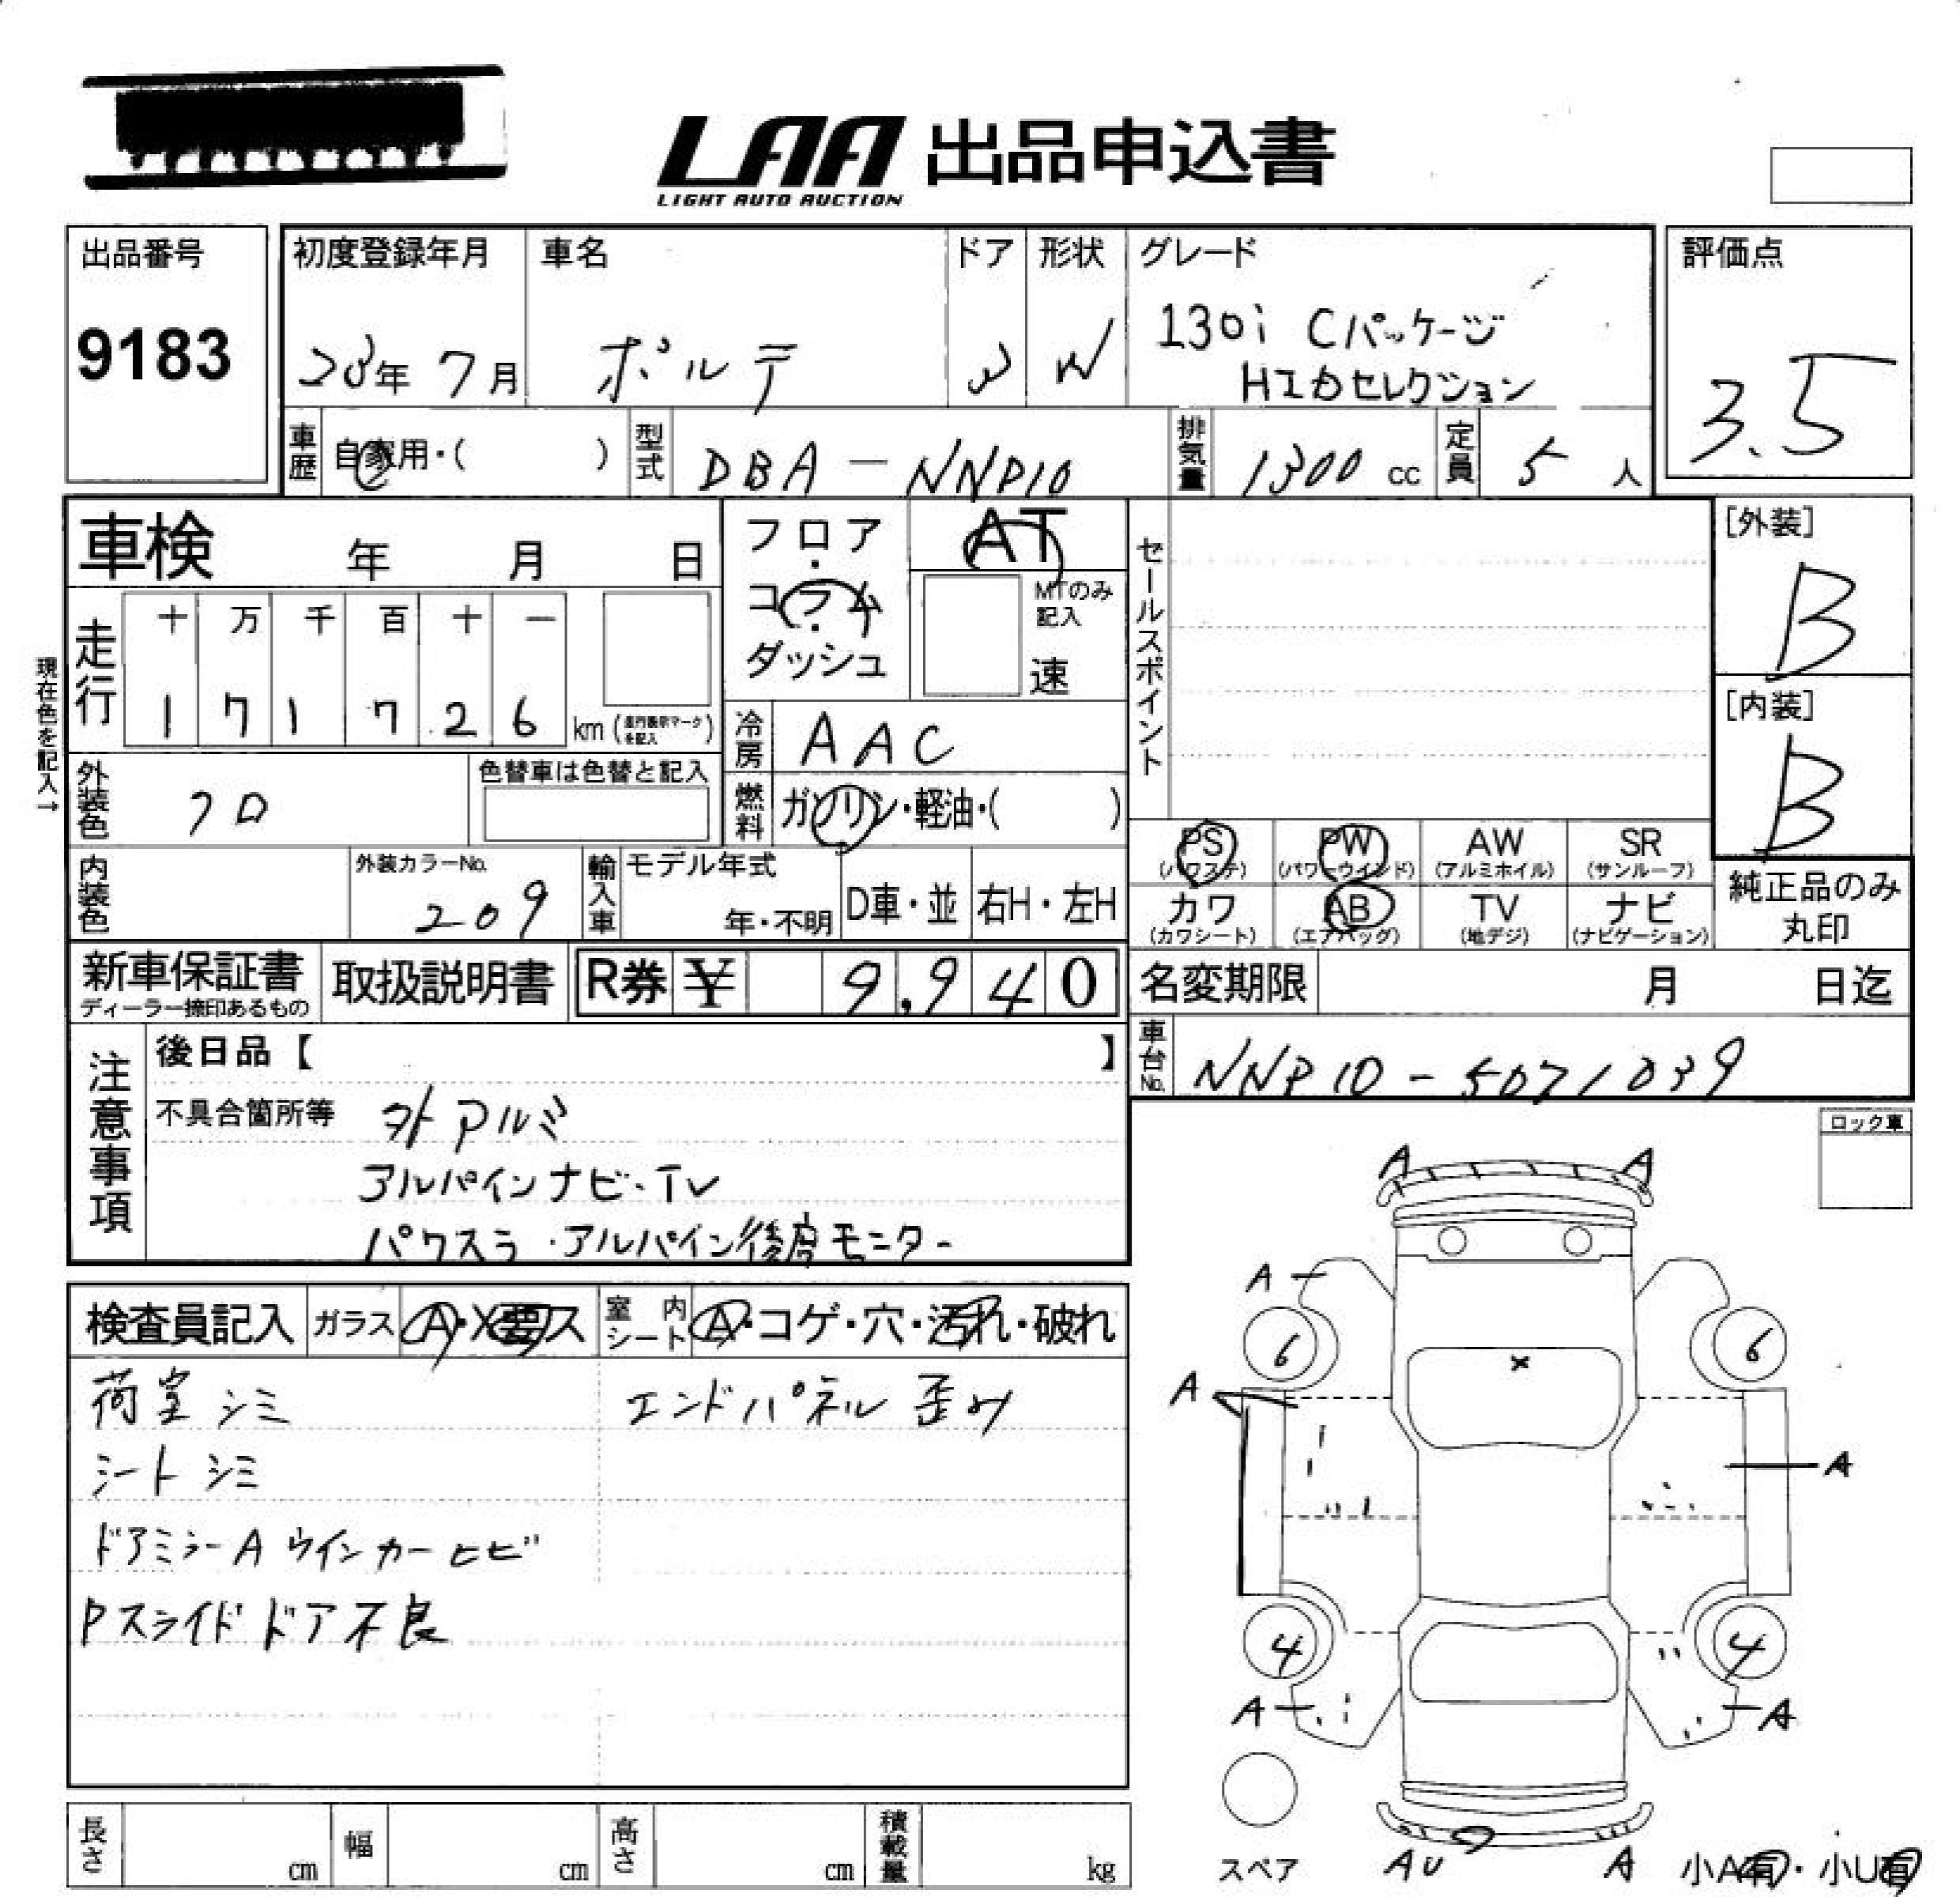 LAA 出品申込書
LIGHT AUTO AUCTION
出品番号
9183
初度登録年月
年 7月
車名
ポルテ
ドア
形状
W
グレード
130i Cパッケージ
HIDセレクション
評価点
3.5
車歴
自家用・( )
型式
DBA-NNP10
排気量
1300 cc
定員
5 人
車検 年 月 日
フロア
・
コラム
・
ダッシュ
AT
MTのみ
記入
速
セールスポイント
[外装]
B
[内装]
B
走行
十 万 千 百 十 一
1 7 1 7 2 6 km (走行表示マークを記入)
現在色を記入→
冷房
AAC
外装色
クロ
色替車は色替と記入
燃料
ガソリン・軽油・( )
内装色
外装カラーNo.
209
輸入車
モデル年式
年・不明
D車・並
右H・左H
PS
(パワステ)
PW
(パワーウインド)
AW
(アルミホイル)
SR
(サンルーフ)
カワ
(カワシート)
AB
(エアバッグ)
TV
(地デジ)
ナビ
(ナビゲーション)
純正品のみ
丸印
新車保証書
ディーラー捺印あるもの
取扱説明書
R券 ¥ 9,940
名変期限 月 日迄
車台No.
NNP10-5071039
注意事項
後日品【 】
不具合箇所等
外アルミ
アルパインナビ・TV
パワスラ・アルパイン後席モニター
ロック車
検査員記入
ガラス
A・X要ス
室内シート
A・コゲ・穴・汚れ・破れ
荷室シミ
エンドパネル歪み
シートシミ
ドアミラーA ウインカーヒビ
Pスライドドア不良
A A
A
6 6
×
A
A
4 4
A A
スペア
AU A
小A有・小U有
長さ cm
幅 cm
高さ cm
積載量 kg